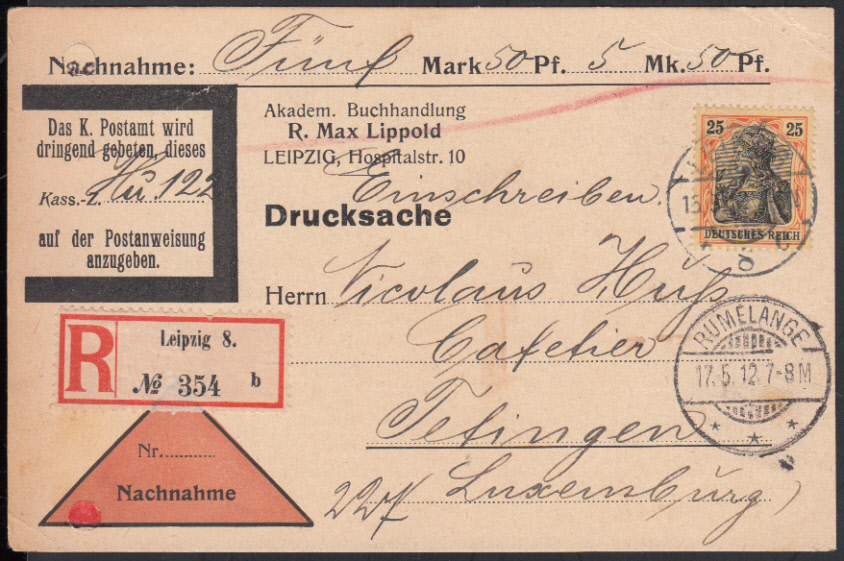 Nachnahme: Fünf Mark 50 Pf. 5 Mk. 50 Pf.
Das K. Postamt wird
dringend gebeten, dieses
Kass.-Z. Hu 122
auf der Postanweisung
anzugeben.
Akadem. Buchhandlung
R. Max Lippold
LEIPZIG, Hospitalstr. 10
Einschreiben
Drucksache
25 25
DEUTSCHES REICH
Herrn Nicolaus Huss
Cafetier
Tetingen
Luxemburg
RUMELANGE
17.5.12.7-8M
R
Leipzig 8.
№ 354 b
Nr.
Nachnahme